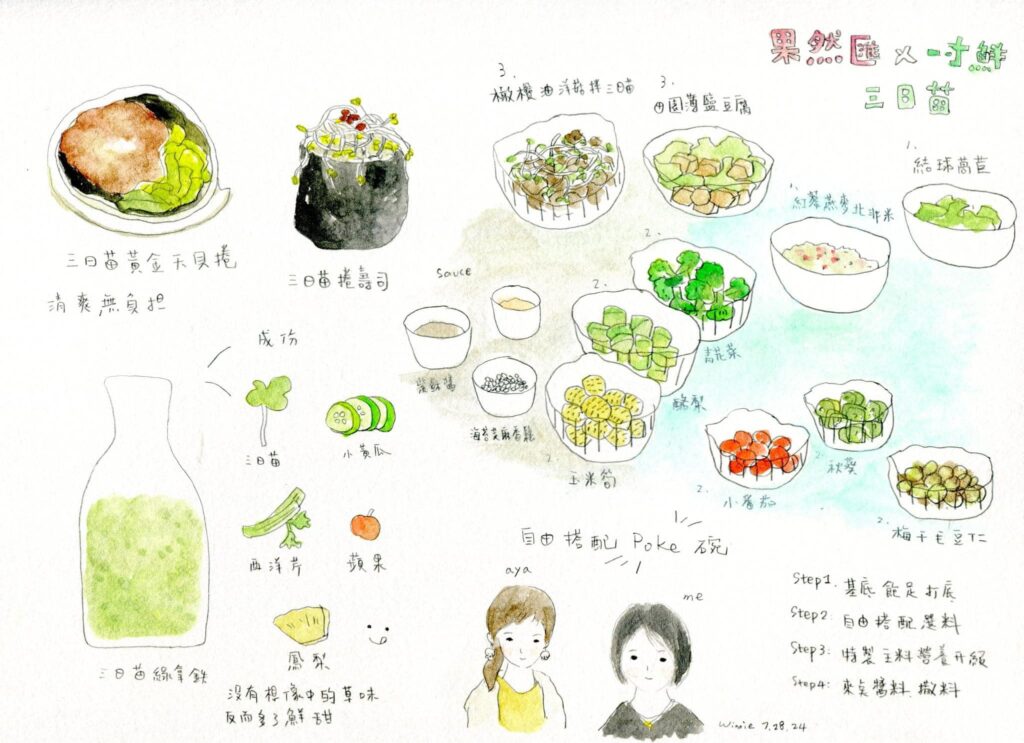 果然匯 x 一寸鮮
三日苗
三日苗黃金天貝捲
清爽無負担
三日苗捲壽司
3.
橄欖油洋菇拌三日苗
3.
田園薄鹽豆腐
1.
結球萵苣
1.
紅藜燕麥北非米
2.
青花菜
2.
酪梨
sauce
海苔芝麻香鬆
2.
玉米筍
2.
小番茄
2.
秋葵
2.
梅干毛豆仁
自由搭配 Poke 碗
成份
三日苗
小黃瓜
西洋芹
蘋果
鳳梨
三日苗綠拿鉄
沒有想像中的草味
反而多了鮮甜
aya
me
Step1. 基底飽足打底
Step2. 自由搭配選料
Step3: 特製主料營養升級
Step4: 來点醬料、撒料
Winie 7.28.24